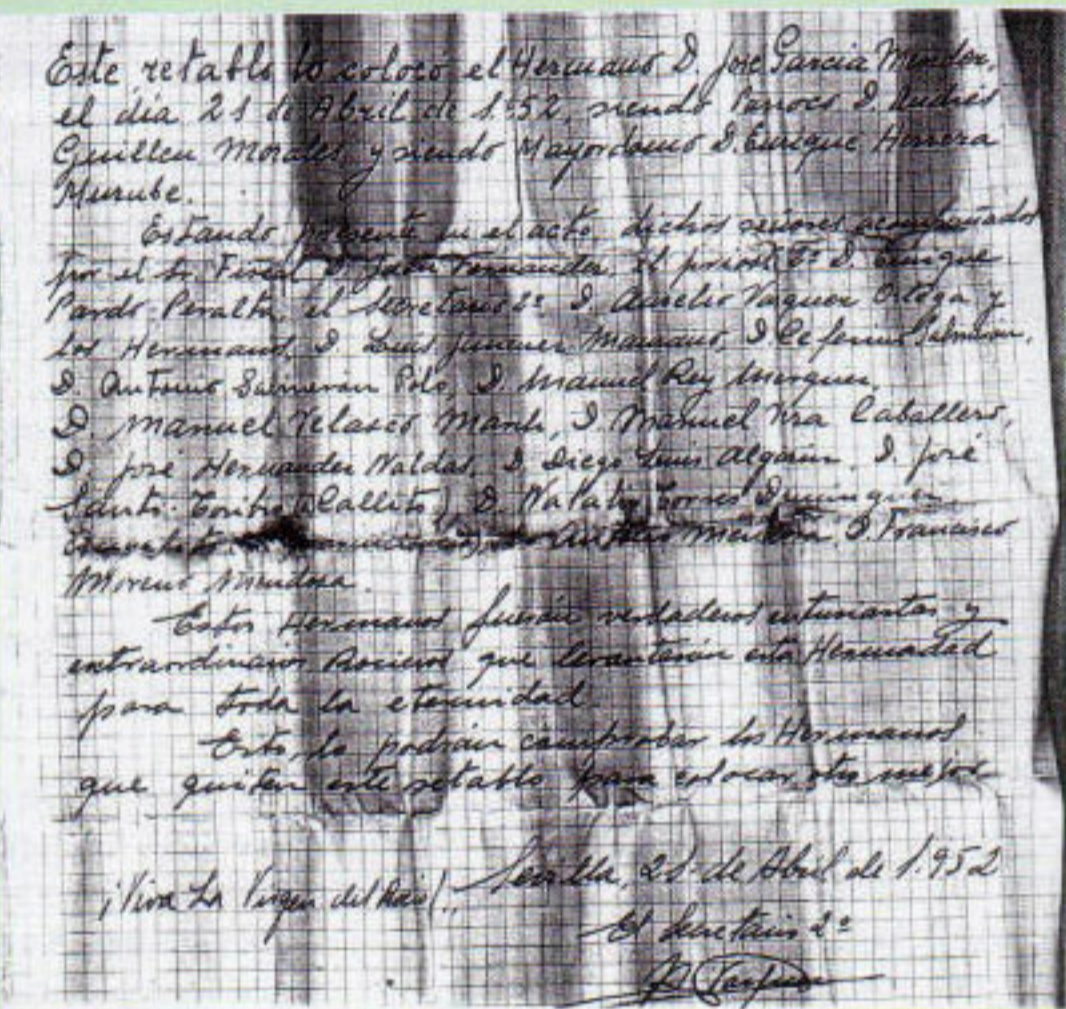 Este retablo lo colocó el Hermano D. José Garcia Mendez,
el dia 21 de Abril de 1.952, siendo Parroco D. Andrés
Guillen Morales y siendo Mayordomo D. Enrique Herrera
Murube.
Estando presente en el acto dichos señores acompañados
por el Sr. Fiscal D. Juan Fernandez, el prioste 1º D. Enrique
Pardo Peralta, el Secretario 2º D. Aurelio Vaquer Ortega y
los Hermanos, D. Luis Jimenez D. Salmeron,
D. Antonio Salmerón Polo, D. Manuel Rey
D. Manuel Velasco D. Manuel Vra Caballero,
D. José Hernandez Naldas, D. Diego Luis Algarin, D. José
Santo D. Natalio Torres Dominguez
Mendoza, D. Francisco
Moreno Mendoza.
Estos Hermanos fuerón verdaderos entusiastas y
extraordinarios Rocieros que levantarón esta Hermandad
para toda la eternidad.
Esto, lo podrán comprobar los Hermanos
que quiten este retablo para colocar otro mejor
Sevilla, 21 de Abril de 1.952
¡Viva La Virgen del Rocio!
El Secretario 2º